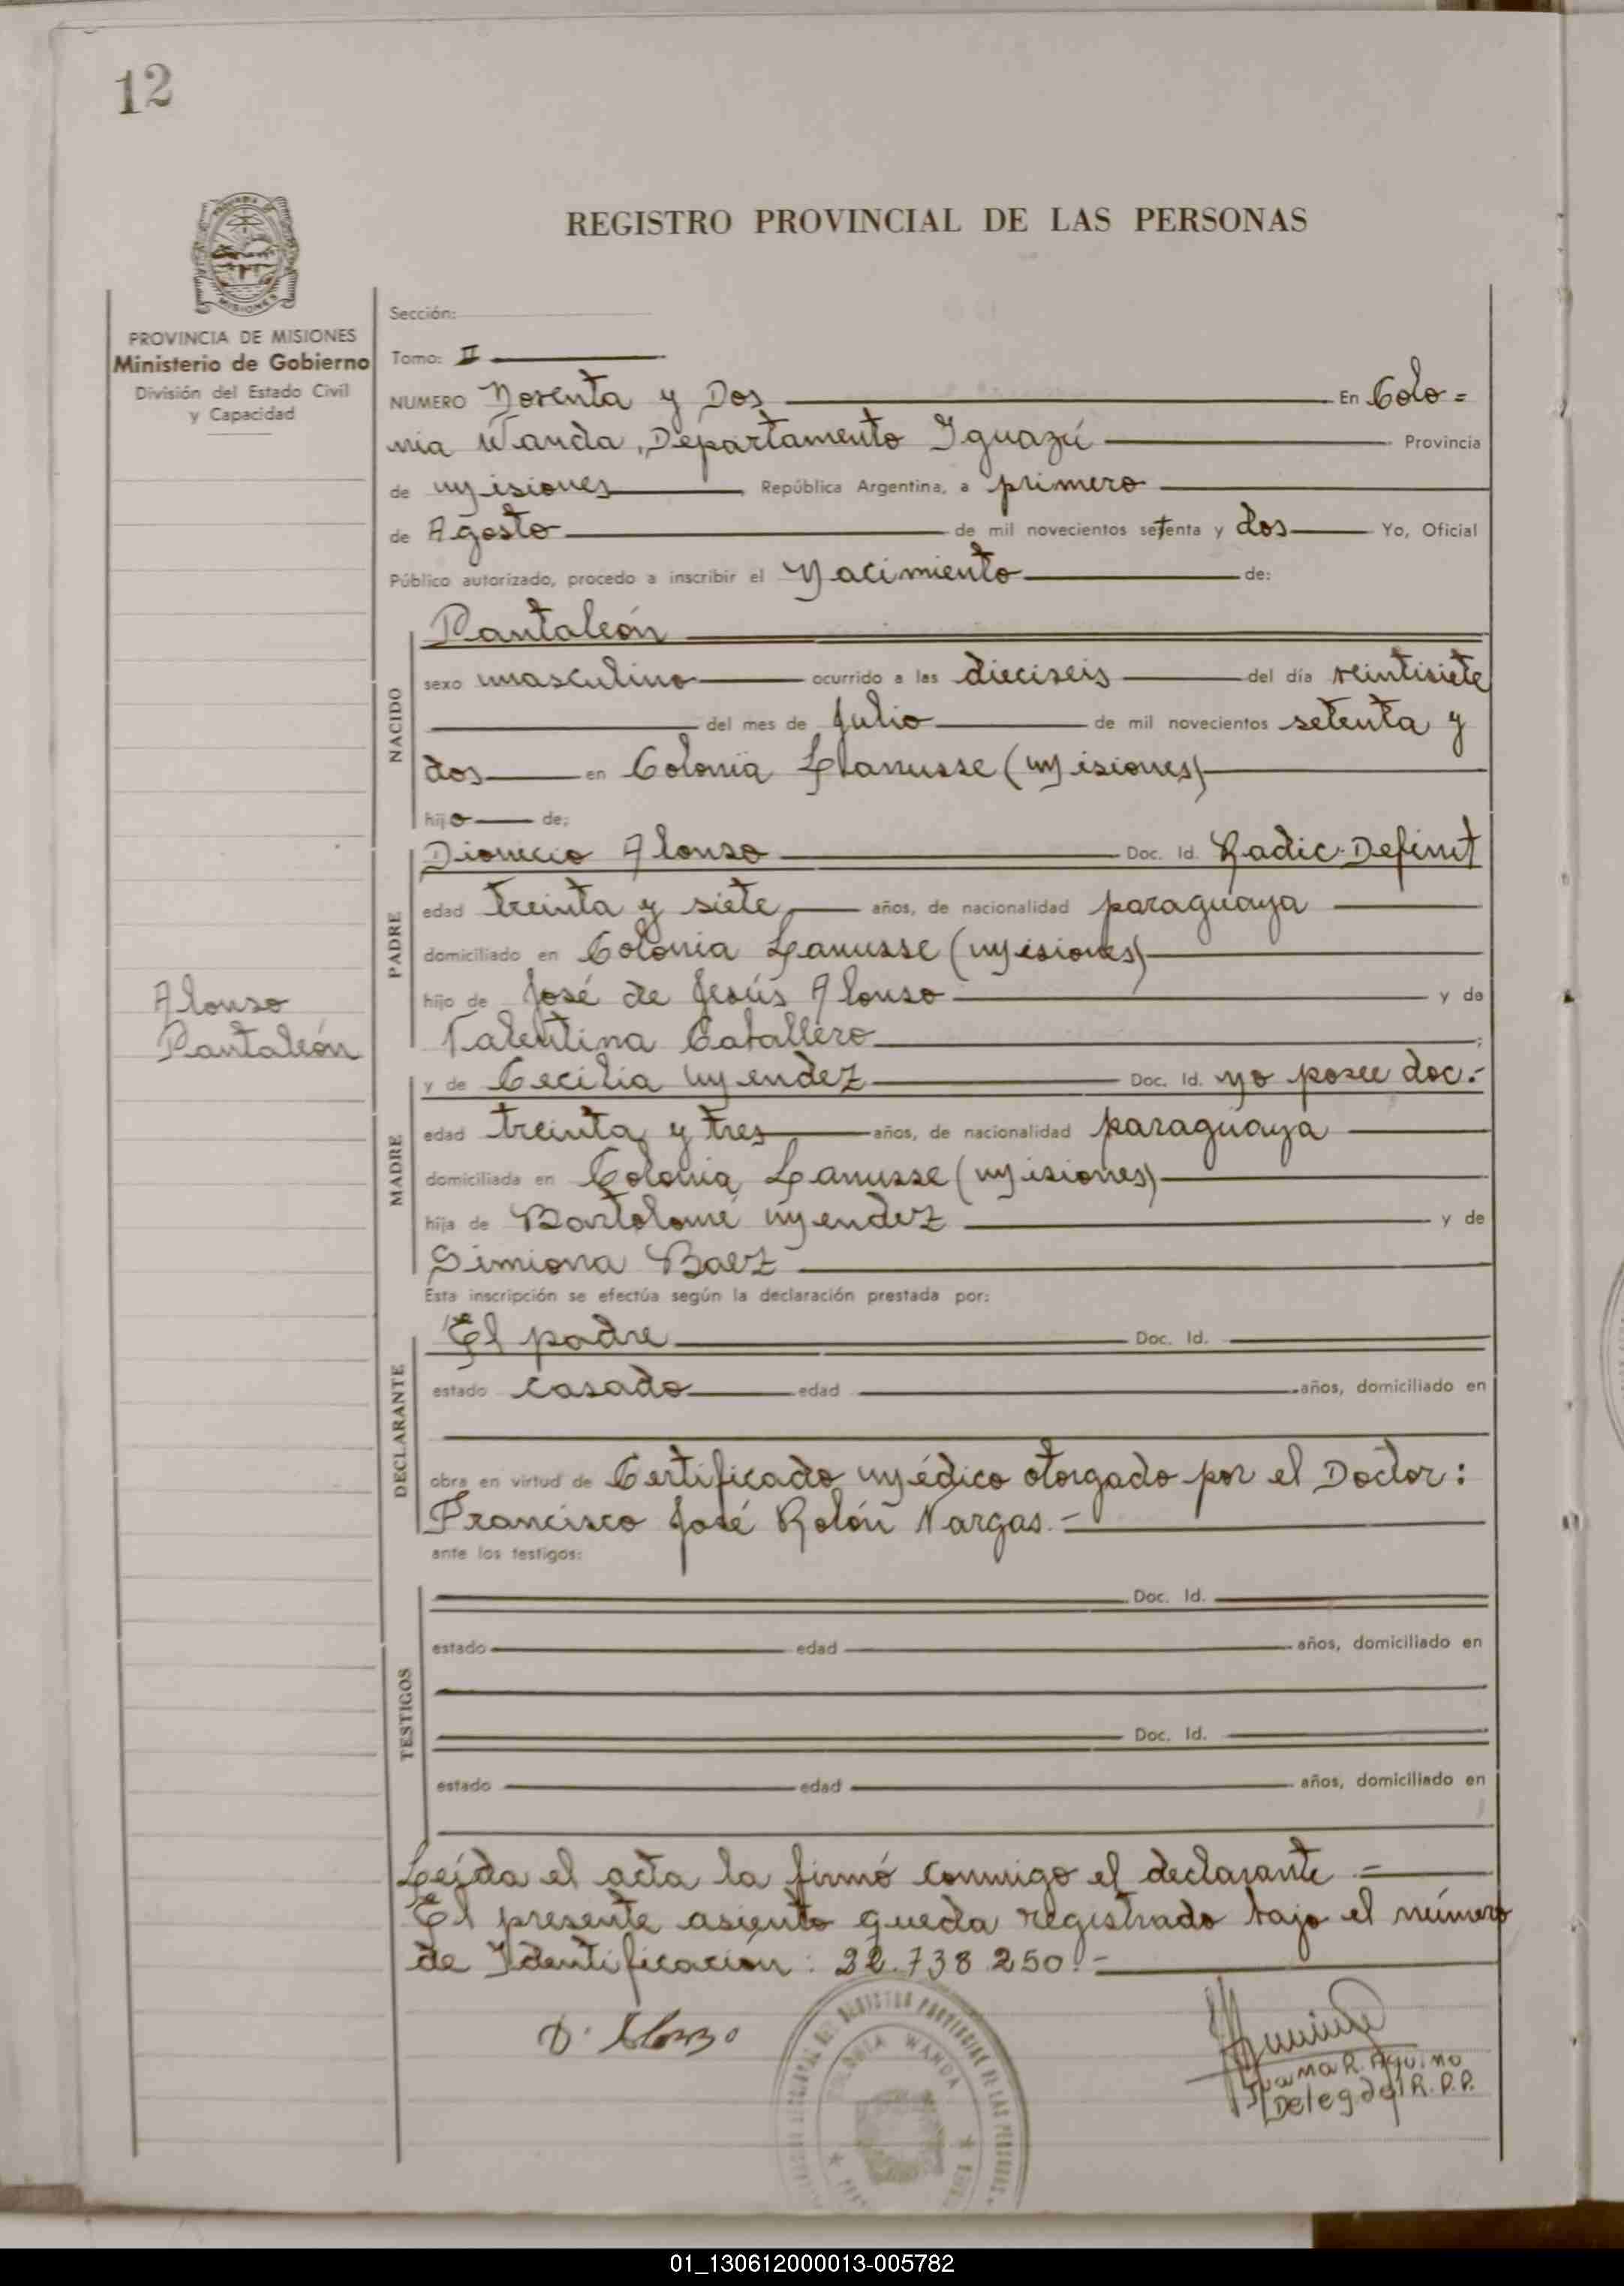 12
REGISTRO PROVINCIAL DE LAS PERSONAS
MISIONES
PROVINCIA DE MISIONES
Ministerio de Gobierno
División del Estado Civil
y Capacidad
Sección:
Tomo: II
NUMERO Noventa y Dos En Colo=
nia Wanda, Departamento Iguazú Provincia
de Misiones República Argentina, a primero
de Agosto de mil novecientos setenta y dos Yo, Oficial
Público autorizado, procedo a inscribir el Nacimiento de:
NACIDO
Pantaleón
sexo masculino ocurrido a las dieciseis del día veintisiete
del mes de Julio de mil novecientos setenta y
dos en Colonia Lanusse (Misiones)
hijo de:
PADRE
Dionicio Alonso Doc. Id. Radic. Definit
edad treinta y siete años, de nacionalidad paraguaya
domiciliado en Colonia Lanusse (Misiones)
hijo de José de Jesús Alonso y de
Valentina Caballero
Alonso
Pantaleón
MADRE
y de Cecilia Mendez Doc. Id. No posee doc.-
edad treinta y tres años, de nacionalidad paraguaya
domiciliada en Colonia Lanusse (Misiones)
hija de Bartolomé Mendez y de
Simiona Baez
Esta inscripción se efectúa según la declaración prestada por:
DECLARANTE
El padre Doc. Id.
estado casado edad años, domiciliado en
obra en virtud de Certificado Médico otorgado por el Doctor:
Francisco José Rolón Vargas.-
ante los testigos:
TESTIGOS
Doc. Id.
estado edad años, domiciliado en
Doc. Id.
estado edad años, domiciliado en
Leída el acta la firmó conmigo el declarante.=
El presente asiento queda registrado bajo el número
de Identificación: 22.738.250.-
D. Alonzo
REGISTRO PROVINCIAL DE LAS PERSONAS
COLONIA WANDA
Juana R. Aquino
Deleg. del R.P.P.
01_130612000013-005782